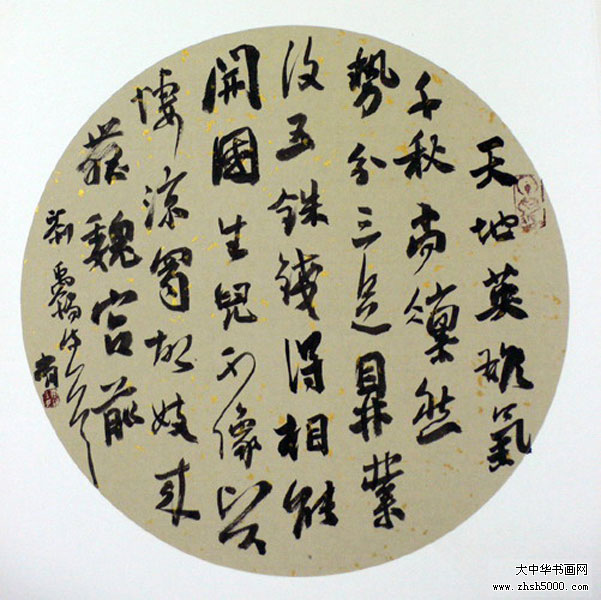 天地英雄氣
千秋尚凜然
勢分三足鼎業
復五銖錢得相能
開國生兒不像賢
悽涼蜀故妓來
舞魏宫前
劉禹錫诗
大中华书画网
www.zhsh5000.com